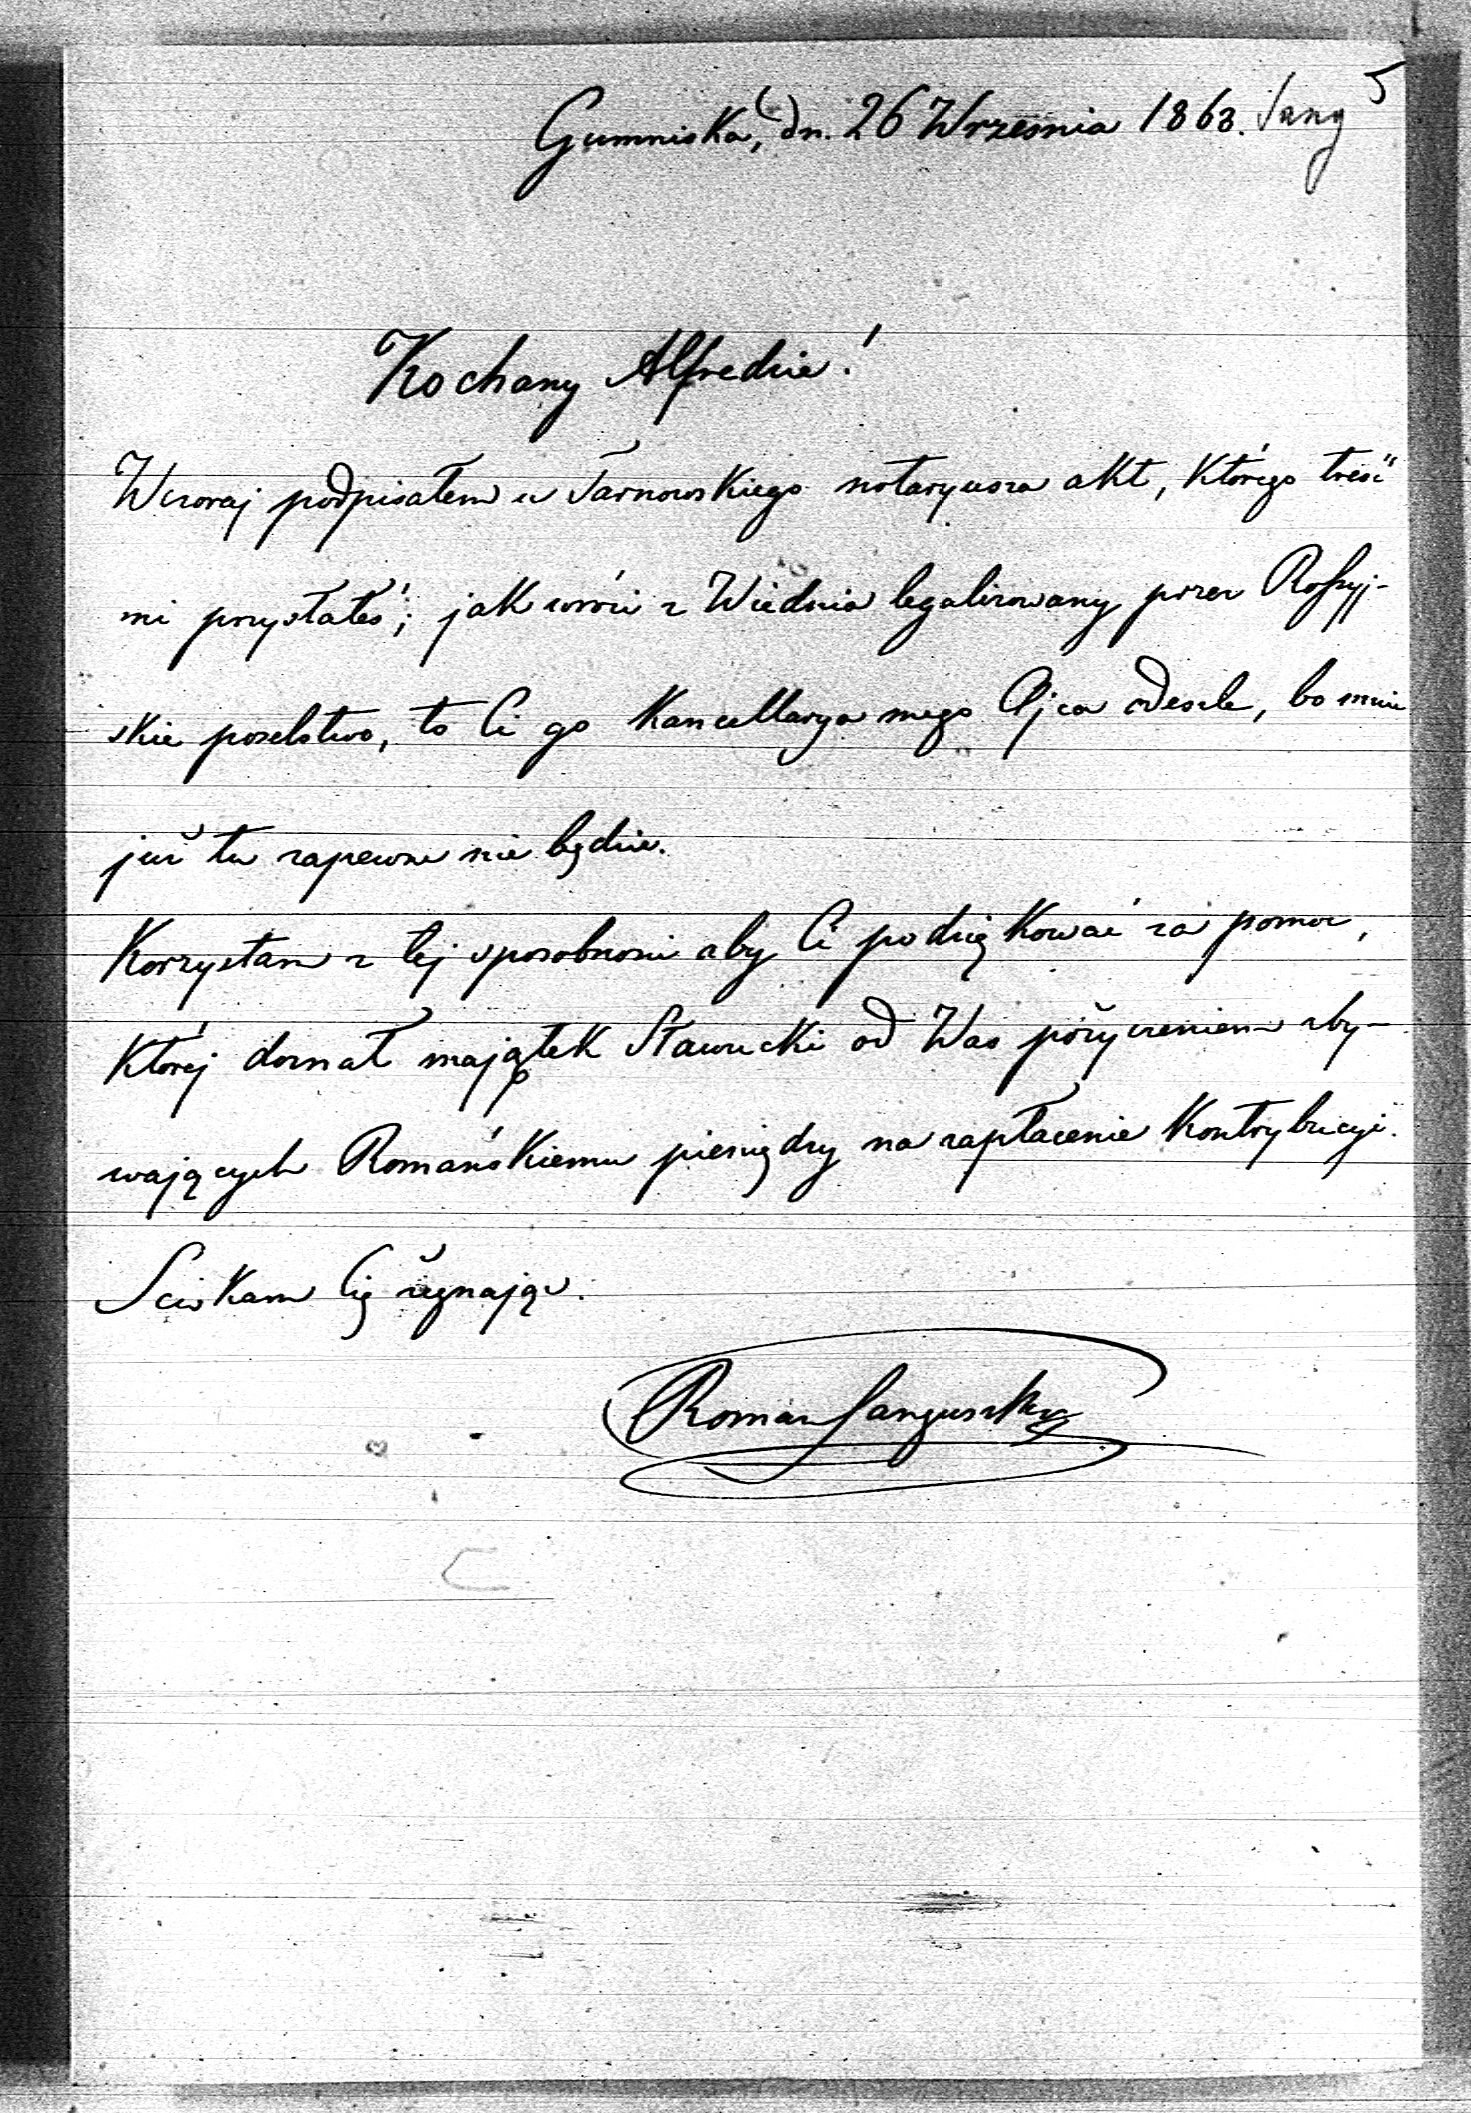 5
Gumniska, dn. 26 Września 1863. Sang
Kochany Alfredzie!
Wczoraj podpisałem u Tarnowskiego notaryusza akt, którego treść
mi przysłałeś; jak wróci z Wiednia legalizowany przez Rossyj-
skie poselstwo, to Ci go Kancellarya mego Ojca odeszle, bo mnie
już tu zapewne nie będzie.
Korzystam z tej sposobności aby Ci podziękować za pomoc,
której doznał majątek Sławucki od Was pożyczeniem zby-
wających Romańskiemu pieniędzy na zapłacenie Kontrybucyi.
Sciskam Cię żegnając.
Roman Sanguszko